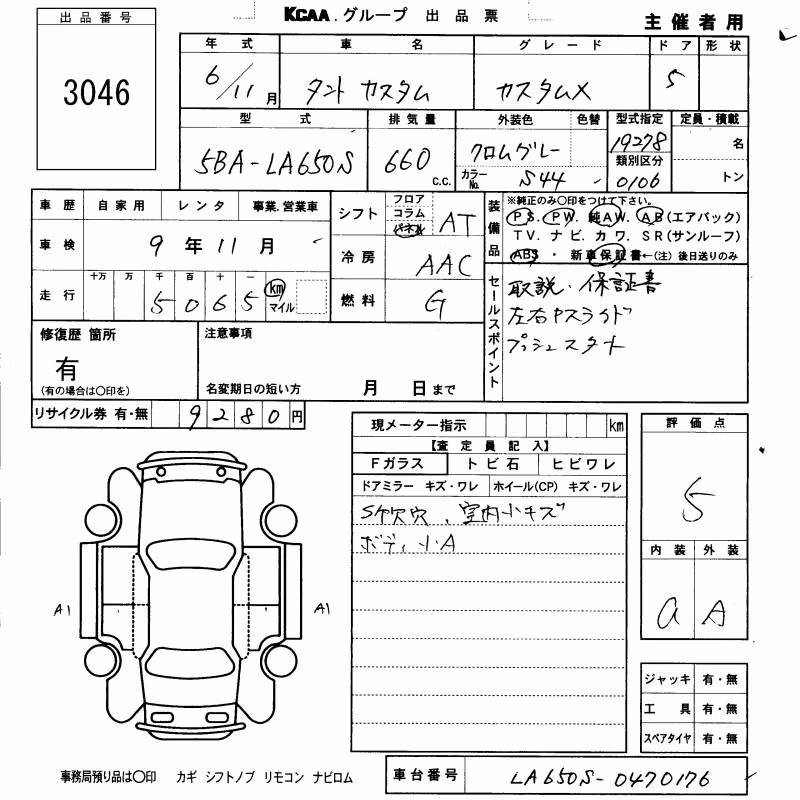 出品番号
3046
KCAA.グループ 出品票
主催者用
年式 車名 グレード ドア 形状
6/11月 タント カスタム カスタムX 5
型式 排気量 外装色 色替 型式指定 定員・積載
5BA-LA650S 660 c.c. クロムグレー 19278 名
カラーNo. S44 類別区分 0106 トン
車歴 自家用 レンタ 事業.営業車
車検 9年11月
走行 十万 万 千 百 十 一
5065 km マイル
シフト フロア コラム パネル AT
冷房 AAC
燃料 G
装備品 ※純正のみ〇印をつけて下さい。
PS. PW. 純AW. AB(エアバック)
TV. ナビ. カワ. SR(サンルーフ)
ABS ・ 新車保証書←(注)後日送りのみ
セールスポイント
取説・保証書
左右Pスライド
プッシュスタート
修復歴 箇所
有
(有の場合は〇印を)
注意事項
名変期日の短い方 月 日まで
リサイクル券 有・無 9280円
現メーター指示 km
【査定員記入】
Fガラス トビ石 ヒビワレ
ドアミラー キズ・ワレ ホイール(CP) キズ・ワレ
S欠穴、室内小キズ
ボディ小A
評価点
5
内装 外装
a A
A1 A1
ジャッキ 有・無
工具 有・無
スペアタイヤ 有・無
事務局預り品は〇印 カギ シフトノブ リモコン ナビロム
車台番号 LA650S-0470176